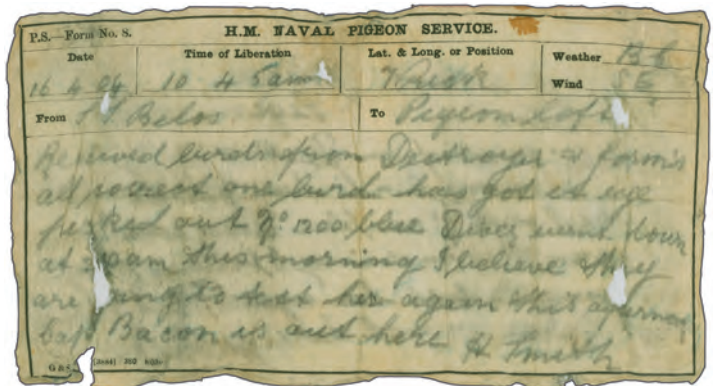 P.S.—Form No. 8. H.M. NAVAL PIGEON SERVICE.
Date Time of Liberation Lat. & Long. or Position Weather B C
16 4 04 10 45am Wind SE
From S.S. Belos To Pigeon Loft
Received birds from Destroyer & forms
all correct one bird has got its eye
pecked out No 1200 blue Diver went down
at am this morning I believe they
are going to test her again this afternoon
Capt Bacon is out here H Smith